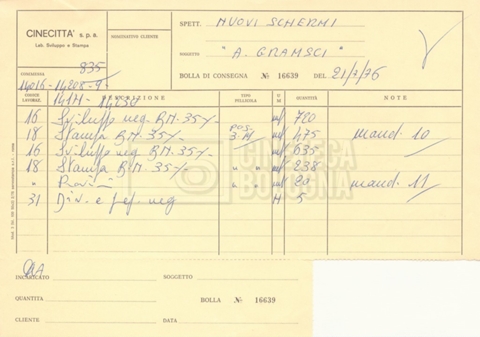 CINECITTÀ s.p.a.
Lab. Sviluppo e Stampa
NOMINATIVO CLIENTE
SPETT. NUOVI SCHERMI
SOGGETTO "A. GRAMSCI"
BOLLA DI CONSEGNA № 16639 DEL 21/7/76
835
COMMESSA
14016-14208-9-
CODICE LAVORAZ. DESCRIZIONE TIPO PELLICOLA U/M QUANTITÀ NOTE
16 Sviluppo neg B.N. 35% mt 720
18 Stampa B.N. 35% POS. 3 N mt 475 mand. 10
16 Sviluppo neg B.N. 35% mt 635
18 Stampa B.N. 35% " " mt 238
" Provini " " mt 20 mand. 11
31 Div. e neg H 5
CINETECA
BOLOGNA
INCARICATO SOGGETTO
QUANTITÀ BOLLA № 16639
CLIENTE DATA